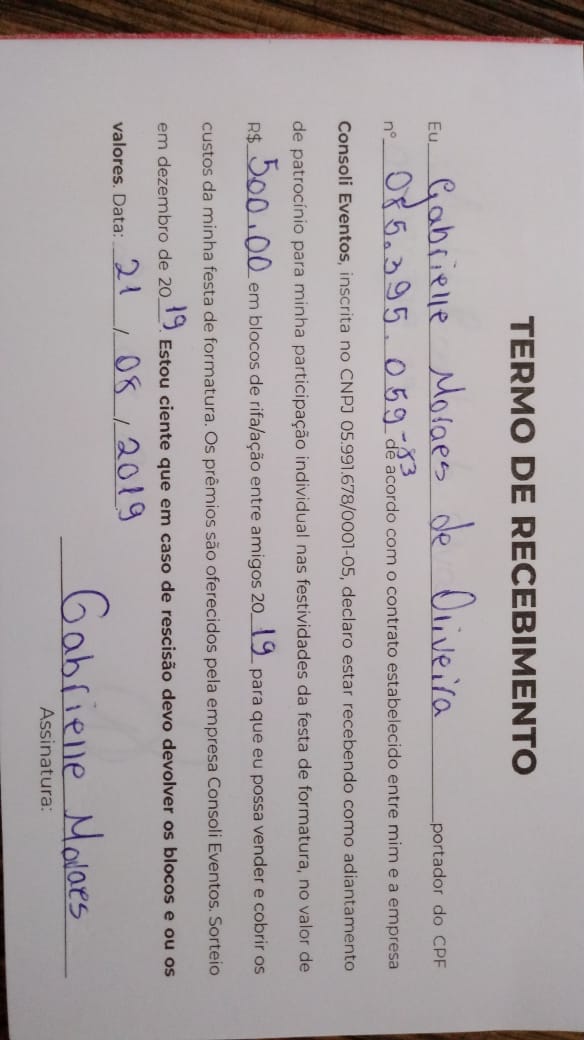 TERMO DE RECEBIMENTO
Eu Gabrielle Moraes de Oliveira portador do CPF
nº 085.395.059-83 de acordo com o contrato estabelecido entre mim e a empresa
Consoli Eventos, inscrita no CNPJ 05.991.678/0001-05, declaro estar recebendo como adiantamento
de patrocínio para minha participação individual nas festividades da festa de formatura, no valor de
R$ 500,00 em blocos de rifa/ação entre amigos 20 19 para que eu possa vender e cobrir os
custos da minha festa de formatura. Os prêmios são oferecidos pela empresa Consoli Eventos. Sorteio
em dezembro de 20 19. Estou ciente que em caso de rescisão devo devolver os blocos e ou os
valores. Data: 21 / 08 / 2019
Gabrielle Moraes
Assinatura: